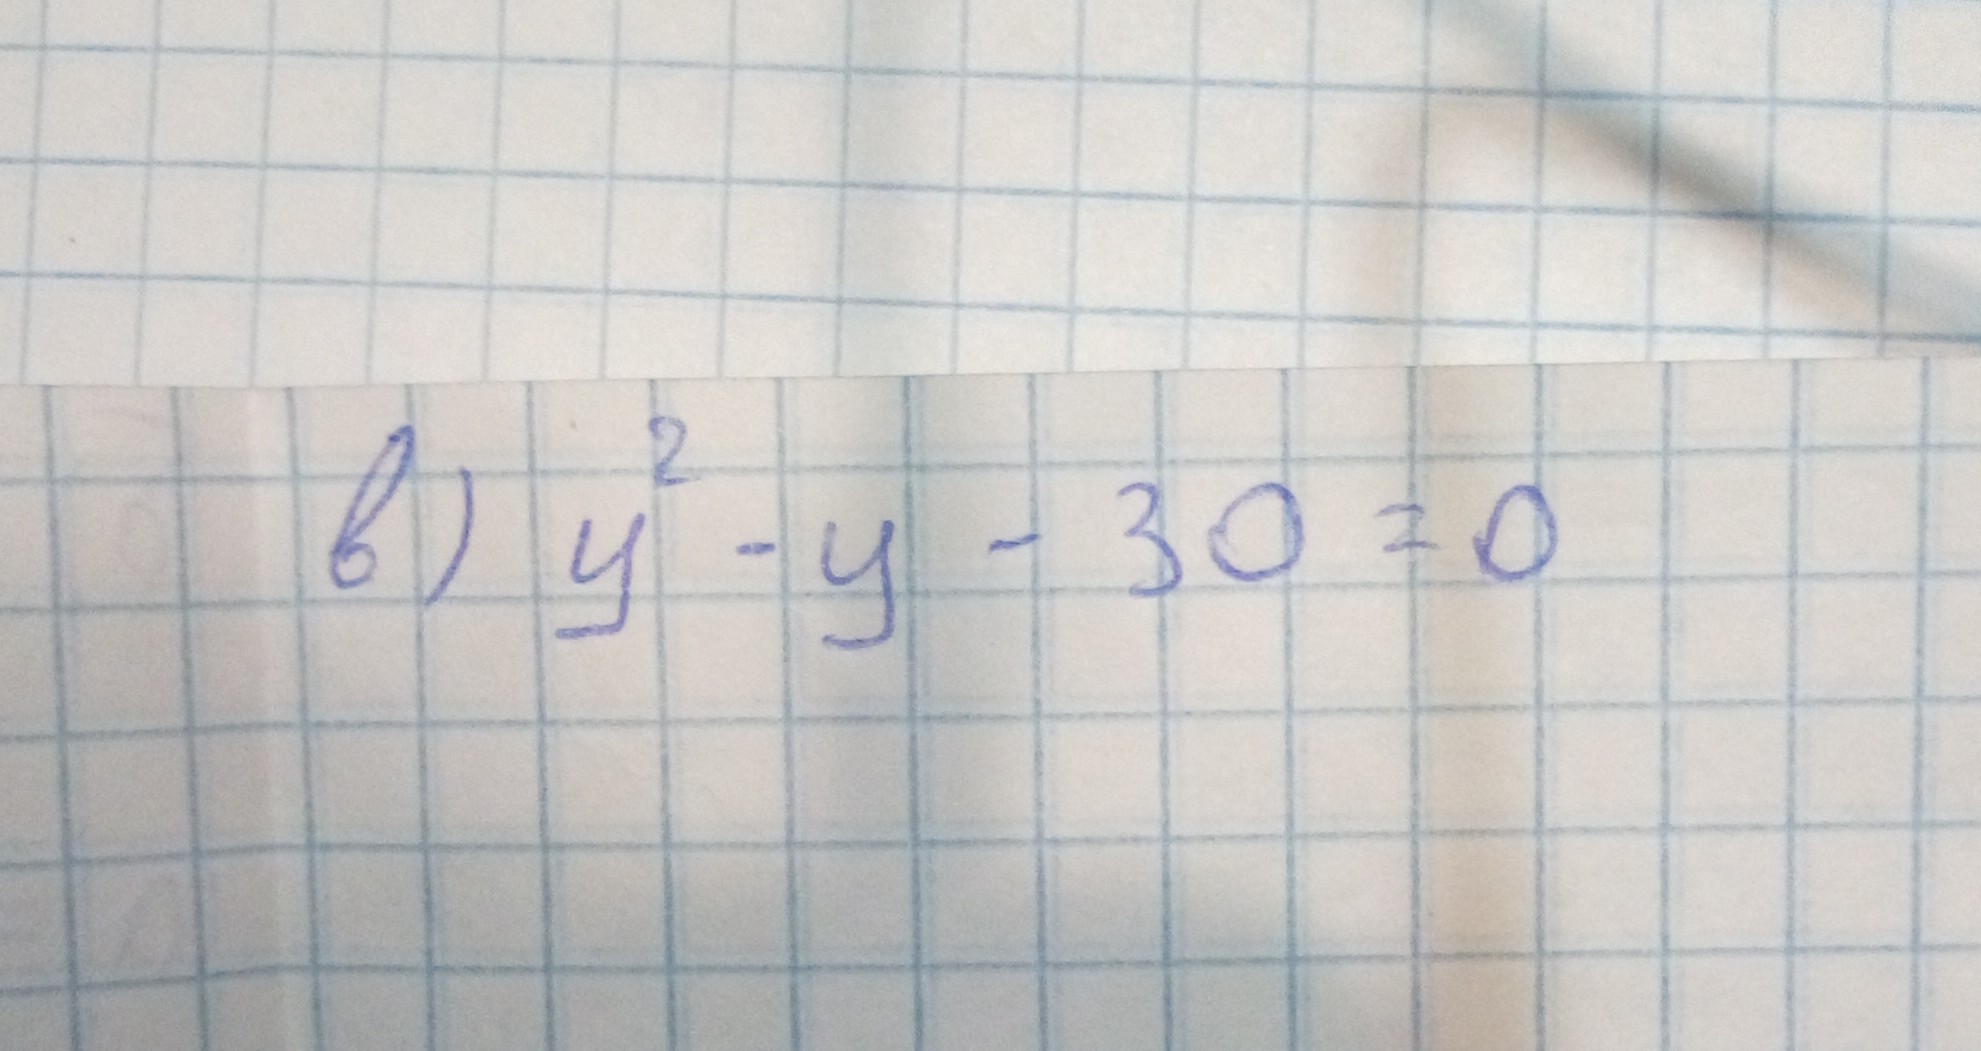 в) y² - y - 30 = 0